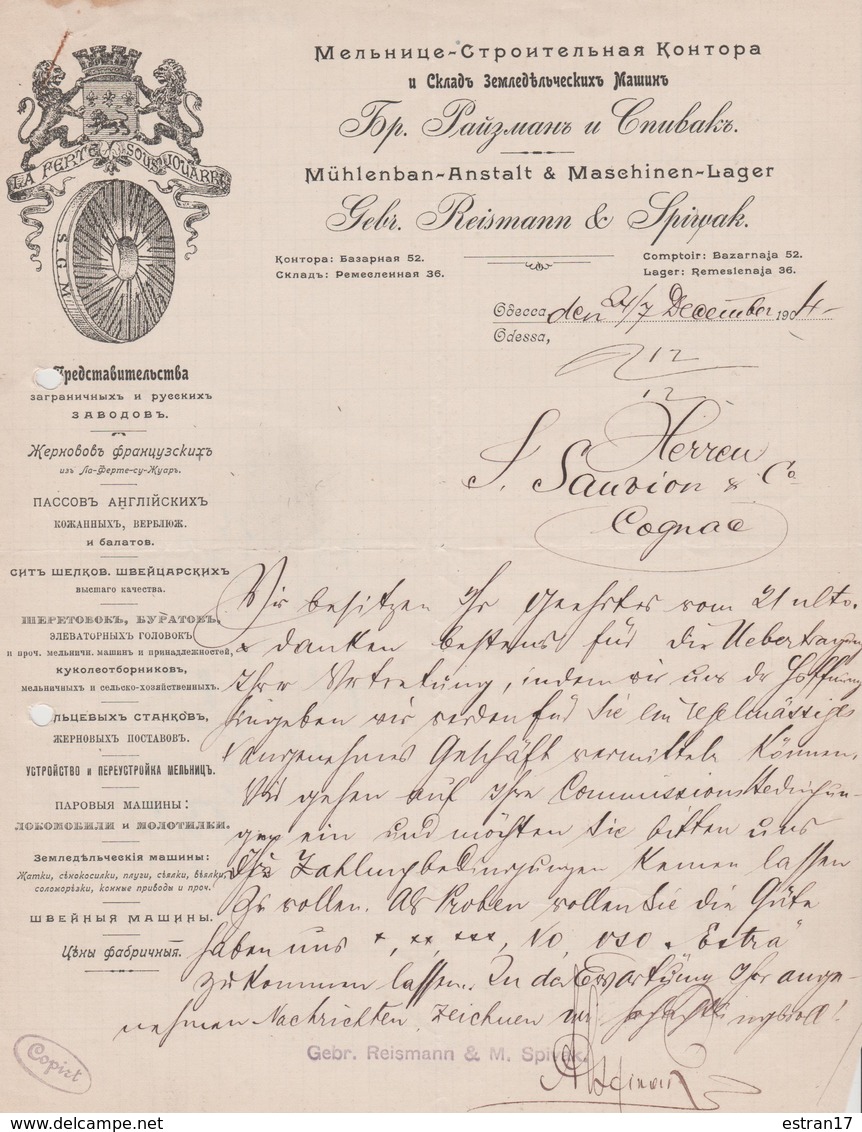 LA FERTÉ SOUS JOUARRE
S. G. M.
Мельнице-Строительная Контора
и Складъ Земледѣльческихъ Машинъ
Бр. Райзманъ и Спивакъ.
Mühlenban-Anstalt & Maschinen-Lager
Gebr. Reismann & Spiwak.
Контора: Базарная 52.
Складъ: Ремесленная 36.
Comptoir: Bazarnaja 52.
Lager: Remeslenaja 36.
Одесса, den 24/7 December 1904
Odessa,
12
12
Представительства
заграничныхъ и русскихъ
ЗАВОДОВЪ.
Жернововъ французскихъ
изъ Ла-Ферте-су-Жуаръ.
ПАССОВЪ АНГЛІЙСКИХЪ
КОЖАННЫХЪ, ВЕРБЛЮЖ.
и балатов.
СИТЪ ШЕЛКОВ. ШВЕЙЦАРСКИХЪ
высшаго качества.
ШЕРЕТОВОКЪ, БУРАТОВЪ,
ЭЛЕВАТОРНЫХЪ ГОЛОВОКЪ
и проч. мельничн. машинъ и принадлежностей,
КУКОЛЕОТБОРНИКОВЪ,
мельничныхъ и сельско-хозяйственныхъ.
ЛЬЦЕВЫХЪ СТАНКОВЪ,
ЖЕРНОВЫХЪ ПОСТАВОВЪ.
УСТРОЙСТВО и ПЕРЕУСТРОЙКА МЕЛЬНИЦЪ.
ПАРОВЫЯ МАШИНЫ:
ЛОКОМОБИЛИ и МОЛОТИЛКИ.
Земледѣльческія машины:
Жатки, сѣнокосилки, плуги, сѣялки, вѣялки,
соломорѣзки, конные приводы и проч.
ШВЕЙНЫЯ МАШИНЫ.
Цѣны фабричныя.
Herren
J. Sauvion & Co
Cognac
Wir besitzen Ihr Geehrtes vom 21 ulto.
& danken bestens für die Uebertragung
Ihrer Vertretung, indem wir uns der Hoffnung
hingeben wir werden für Sie ein regelmässiges
& angenehmes Geschäft vermitteln können.
Wir gehen auf Ihre Commissionsbedingun-
gen ein und möchten Sie bitten uns
Ihre Zahlungbedingungen kennen lassen
zu wollen. Als Proben wollen Sie die Güte
haben uns *, **, ***, No, OSO „Extra"
zukommen lassen. In der Erwartung Ihrer ange-
nehmen Nachrichten, zeichnen wir hochachtungsvoll!
Gebr. Reismann & M. Spivak.
Copirt
estran17